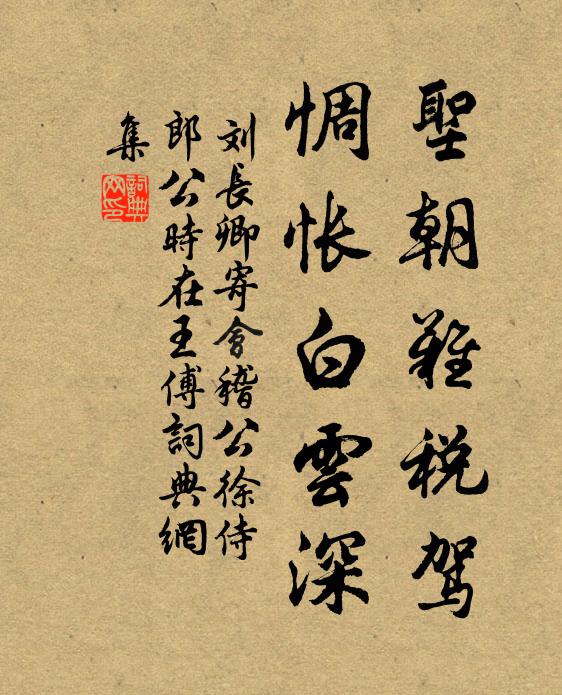 聖朝難税驾
惆怅白雲深
刘長卿寄會稽公徐侍
郎公時在王傅詞典網
集
詞典
网印